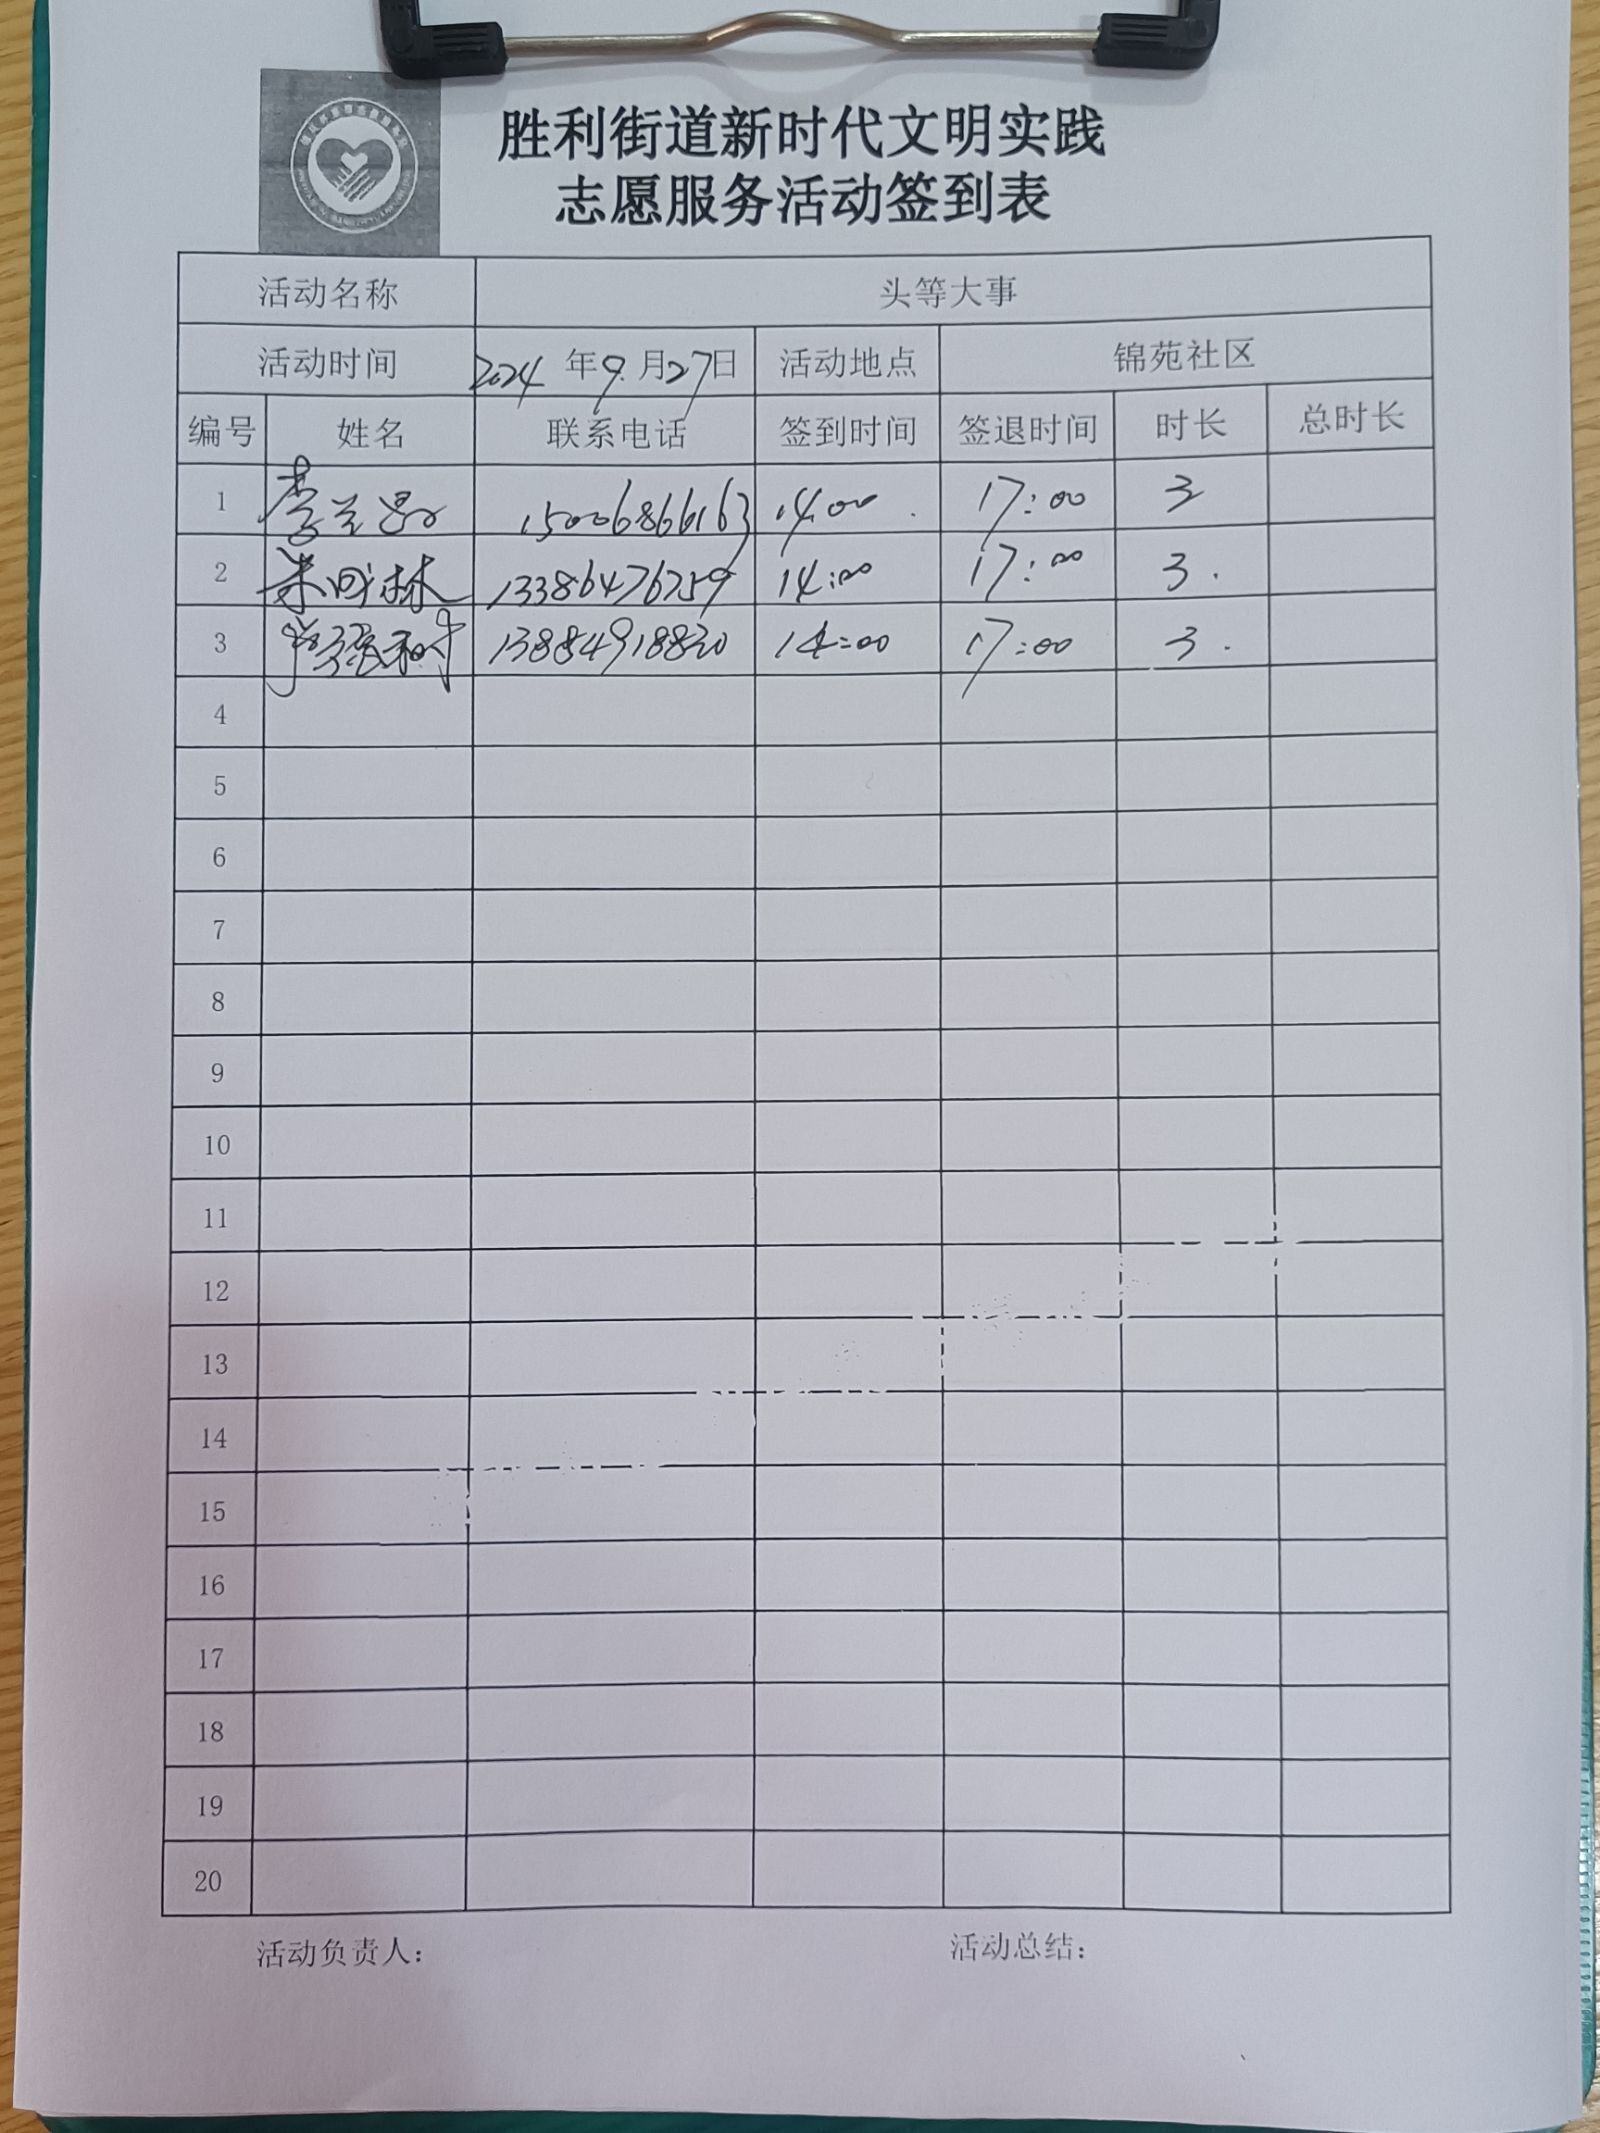 胜利街道新时代文明实践
志愿服务活动签到表
活动名称 头等大事
活动时间 2024 年 9 月 27 日 活动地点 锦苑社区
编号 姓名 联系电话 签到时间 签退时间 时长 总时长
1 15006866163 14:00 17:00 3
2 朱成林 13386476259 14:00 17:00 3.
3 13884918830 14:00 17:00 3.
4
5
6
7
8
9
10
11
12
13
14
15
16
17
18
19
20
活动负责人： 活动总结：